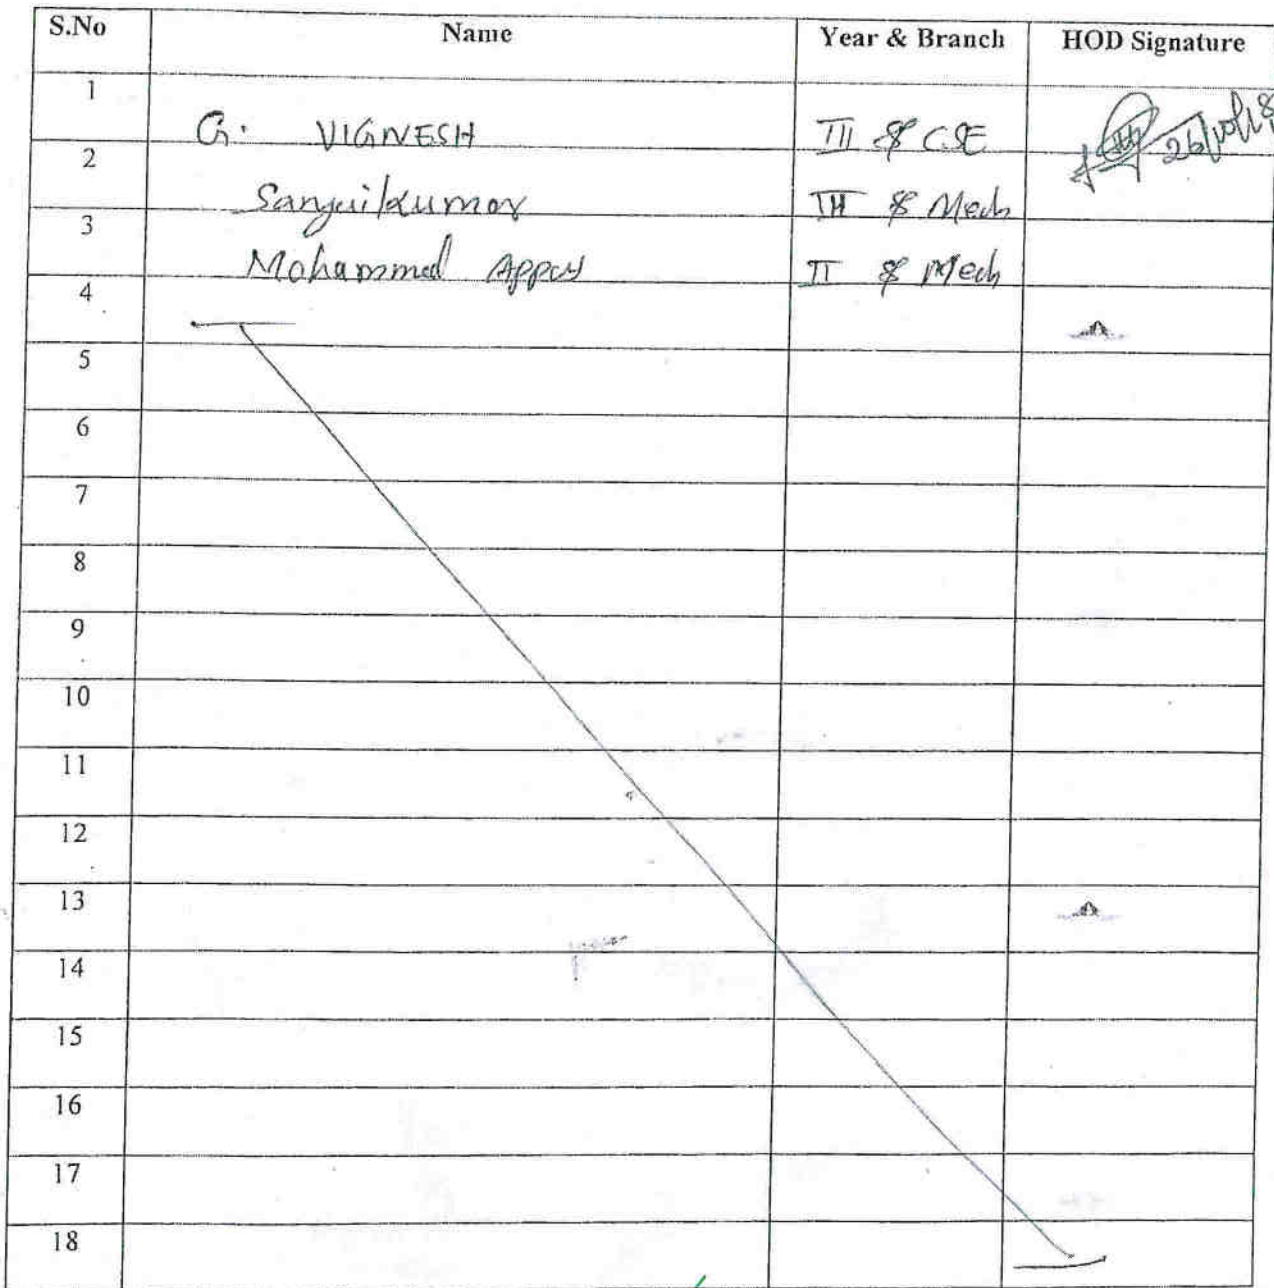 S.No Name Year & Branch HOD Signature
1 G. VIGNESH III & CSE
2 Sanjai kumar III & Mech
3 Mohammed II & Mech
4
5
6
7
8
9
10
11
12
13
14
15
16
17
18